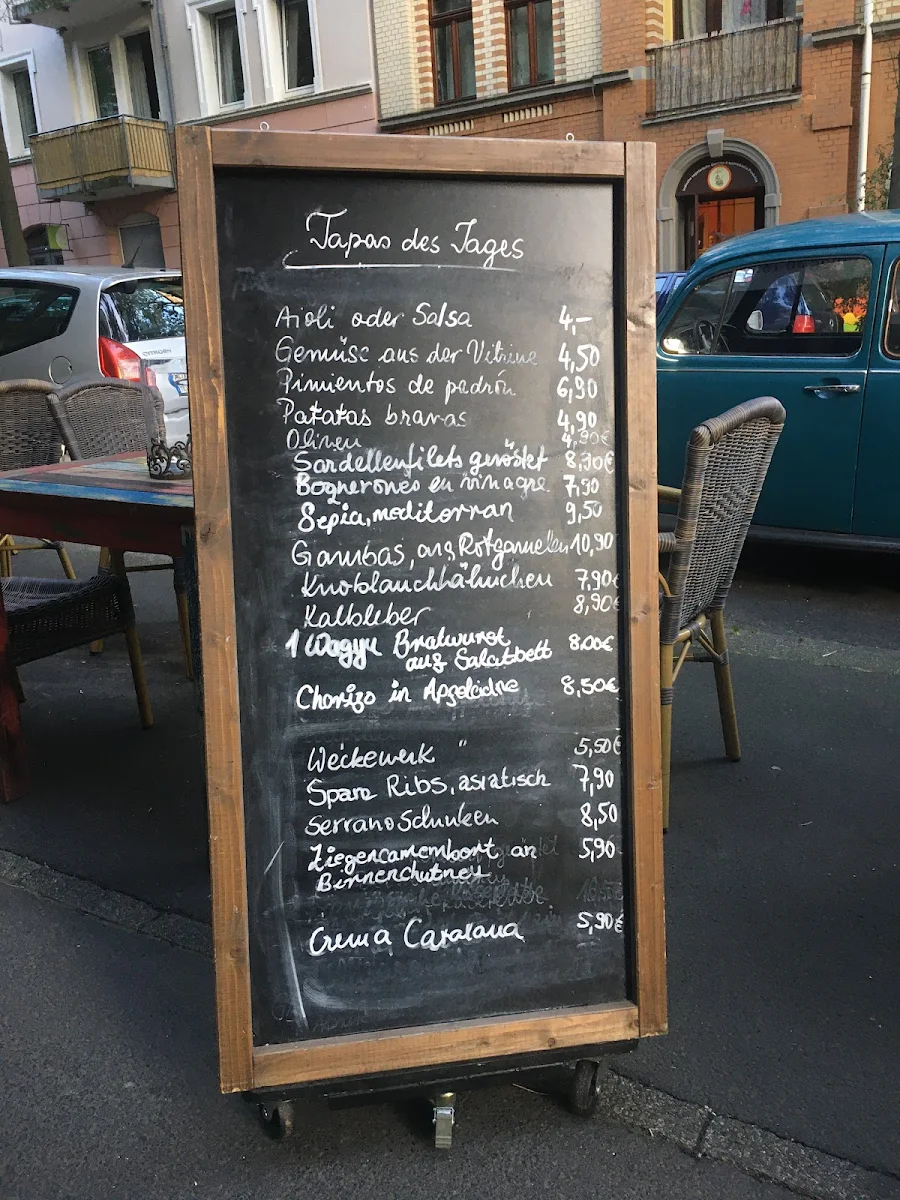 Tapas des Tages
Aioli oder Salsa 4,-
Gemüse aus der Vitrine 4,50
Pimientos de padrón 6,90
Patatas bravas 4,90
Oliven 4,90€
Sardellenfilets geröstet 8,90€
Boqnerones en vinagre 7,90
Sepia, mediterran 9,50
Gambas, arg Rotgarnelen 10,90
Knoblauchhähnchen 7,90€
Kalbleber 8,90€
1 Wagyu Bratwurst 8.00€
auf Salatbett
Chorizo in Apfelcidre 8,50€
Weckewerk " 5,50€
Spare Ribs, asiatisch 7,90
Serrano Schinken 8,50
Ziegencamembert an 5,90
Birnenchutney
Crema Catalana 5,90€